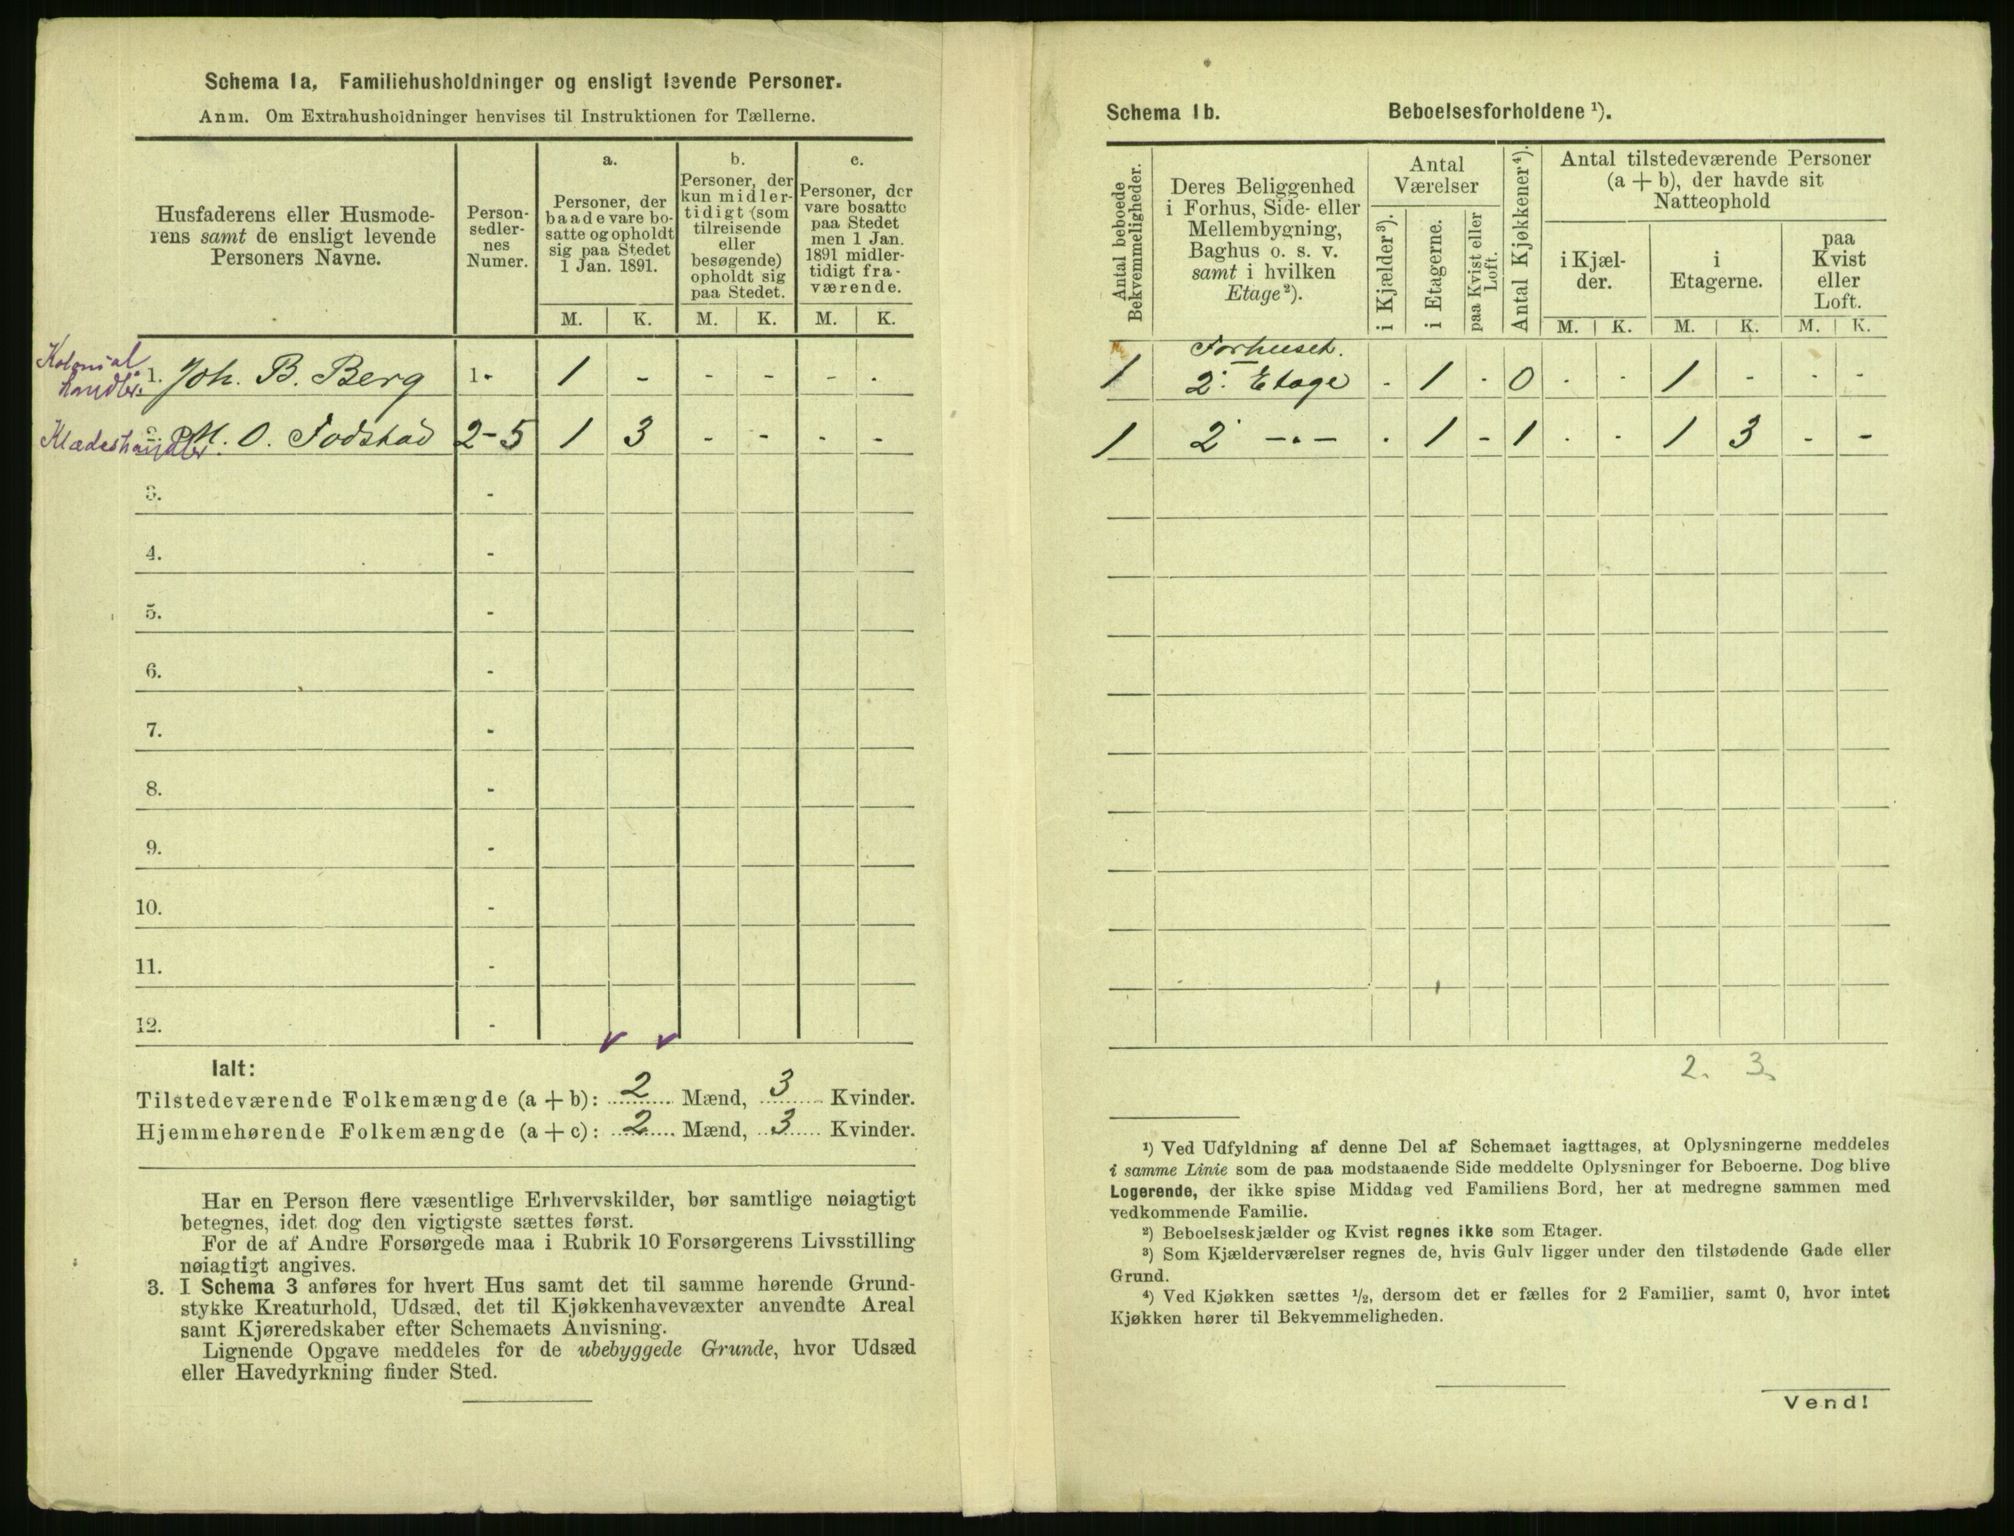 Schema 1a, Familiehusholdninger og ensligt levende Personer.
Anm. Om Extrahusholdninger henvises til Instruktionen for Tællerne.
Husfaderens eller Husmode-
rens samt de ensligt levende
Personers Navne.
Person-
sedler-
nes
Numer.
a.
Personer, der
baade vare bo-
satte og opholdt
sig paa Stedet
1 Jan. 1891.
b.
Personer, der
kun midler-
tidigt (som
tilreisende
eller
besøgende)
opholdt sig
paa Stedet.
c.
Personer, der
vare bosatte
paa Stedet
men 1 Jan.
1891 midler-
tidigt fra-
værende.
M. K. M. K. M. K.
Kolonial
handler
1. Joh. B. Berg 1 - 1 - - - - -
Klædeshandler.
2. M. O. Fodstad 2-5 1 3 - - - -
3. -
4. -
5. -
6. -
7. -
8. -
9. -
10. -
11. -
12. -
Ialt:
Tilstedeværende Folkemængde (a + b): 2 Mænd, 3 Kvinder.
Hjemmehørende Folkemængde (a + c): 2 Mænd, 3 Kvinder.
Har en Person flere væsentlige Erhvervskilder, bør samtlige nøiagtigt
betegnes, idet dog den vigtigste sættes først.
For de af Andre Forsørgede maa i Rubrik 10 Forsørgerens Livsstilling
nøiagtigt angives.
3. I Schema 3 anføres for hvert Hus samt det til samme hørende Grund-
stykke Kreaturhold, Udsæd, det til Kjøkkenhavevæxter anvendte Areal
samt Kjøreredskaber efter Schemaets Anvisning.
Lignende Opgave meddeles for de ubebyggede Grunde, hvor Udsæd
eller Havedyrkning finder Sted.
Schema 1b. Beboelsesforholdene ¹).
Antal beboede
Bekvemmeligheder.
Deres Beliggenhed
i Forhus, Side- eller
Mellembygning,
Baghus o. s. v.
samt i hvilken
Etage²).
Antal
Værelser
i Kjælder³).
i Etagerne.
paa Kvist eller
Loft.
Antal Kjøkkener⁴).
Antal tilstedeværende Personer
(a + b), der havde sit
Natteophold
i Kjæl-
der.
i
Etagerne.
paa
Kvist
eller
Loft.
M. K. M. K. M. K.
Forhuset.
1 2. Etage - 1 - 0 - - 1 - - -
1 2 -"- - 1 - 1 - - 1 3 - -
2. 3.
¹) Ved Udfyldning af denne Del af Schemaet iagttages, at Oplysningerne meddeles
i samme Linie som de paa modstaaende Side meddelte Oplysninger for Beboerne. Dog blive
Logerende, der ikke spise Middag ved Familiens Bord, her at medregne sammen med
vedkommende Familie.
²) Beboelseskjælder og Kvist regnes ikke som Etager.
³) Som Kjælderværelser regnes de, hvis Gulv ligger under den tilstødende Gade eller
Grund.
⁴) Ved Kjøkken sættes ½, dersom det er fælles for 2 Familier, samt 0, hvor intet
Kjøkken hører til Bekvemmeligheden.
Vend!